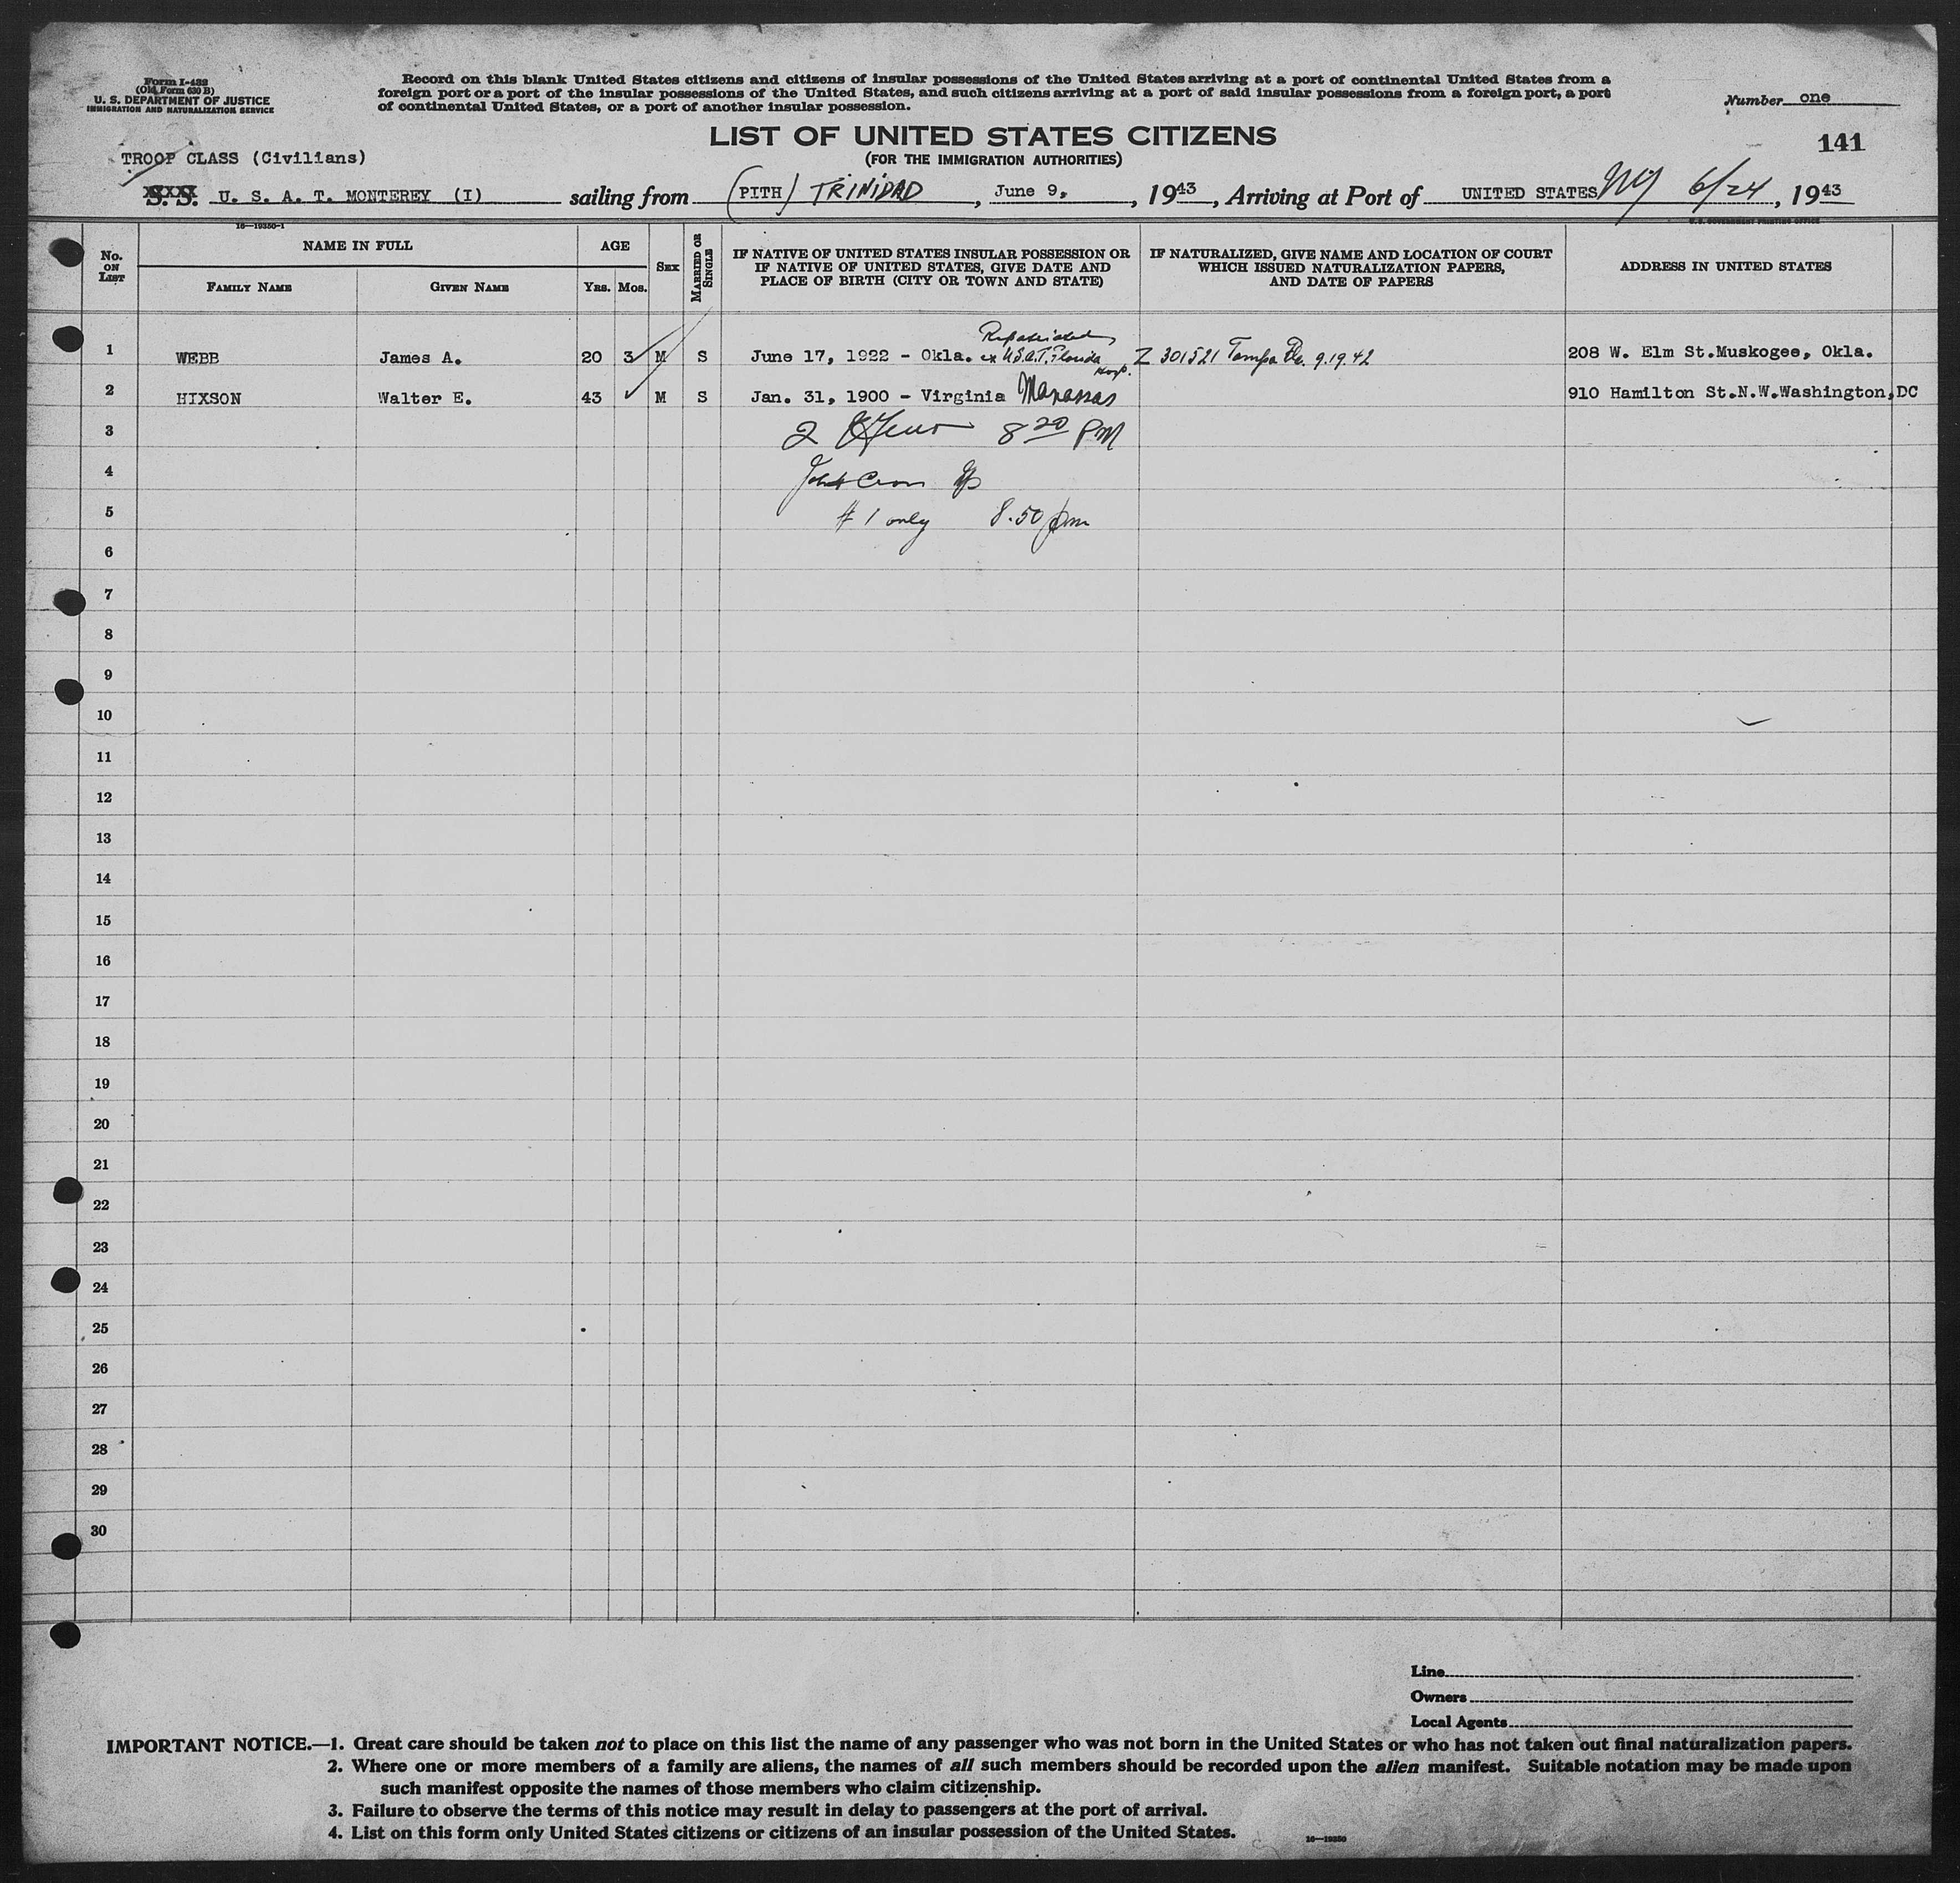 Form I-432
(Old Form 630 B)
U. S. DEPARTMENT OF JUSTICE
IMMIGRATION AND NATURALIZATION SERVICE
Record on this blank United States citizens and citizens of insular possessions of the United States arriving at a port of continental United States from a
foreign port or a port of the insular possessions of the United States, and such citizens arriving at a port of said insular possessions from a foreign port, a port
of continental United States, or a port of another insular possession.
Number one
LIST OF UNITED STATES CITIZENS
(FOR THE IMMIGRATION AUTHORITIES)
141
TROOP CLASS (Civilians)
S. S. U. S. A. T. MONTEREY (I) sailing from (PITH) TRINIDAD, June 9, , 1943, Arriving at Port of UNITED STATES NY 6/24, 1943
16—19350-1
U. S. GOVERNMENT PRINTING OFFICE
No. ON LIST
NAME IN FULL
FAMILY NAME
GIVEN NAME
AGE
YRS.
MOS.
SEX
MARRIED OR SINGLE
IF NATIVE OF UNITED STATES INSULAR POSSESSION OR
IF NATIVE OF UNITED STATES, GIVE DATE AND
PLACE OF BIRTH (CITY OR TOWN AND STATE)
IF NATURALIZED, GIVE NAME AND LOCATION OF COURT
WHICH ISSUED NATURALIZATION PAPERS,
AND DATE OF PAPERS
ADDRESS IN UNITED STATES
Repatriated
1 WEBB James A. 20 3 M S June 17, 1922 - Okla. ex U.S.A.T. Florida Z 301521 Tampa Fla. 9.19.42 208 W. Elm St.Muskogee, Okla.
Hosp.
2 HIXSON Walter E. 43 M S Jan. 31, 1900 - Virginia Manassas 910 Hamilton St.N.W.Washington,DC
3 2 8 20 PM
4
5 # 1 only 8.50 pm
6
7
8
9
10
11
12
13
14
15
16
17
18
19
20
21
22
23
24
25
26
27
28
29
30
Line
Owners
Local Agents
IMPORTANT NOTICE.—1. Great care should be taken not to place on this list the name of any passenger who was not born in the United States or who has not taken out final naturalization papers.
2. Where one or more members of a family are aliens, the names of all such members should be recorded upon the alien manifest. Suitable notation may be made upon
such manifest opposite the names of those members who claim citizenship.
3. Failure to observe the terms of this notice may result in delay to passengers at the port of arrival.
4. List on this form only United States citizens or citizens of an insular possession of the United States.
16—19350